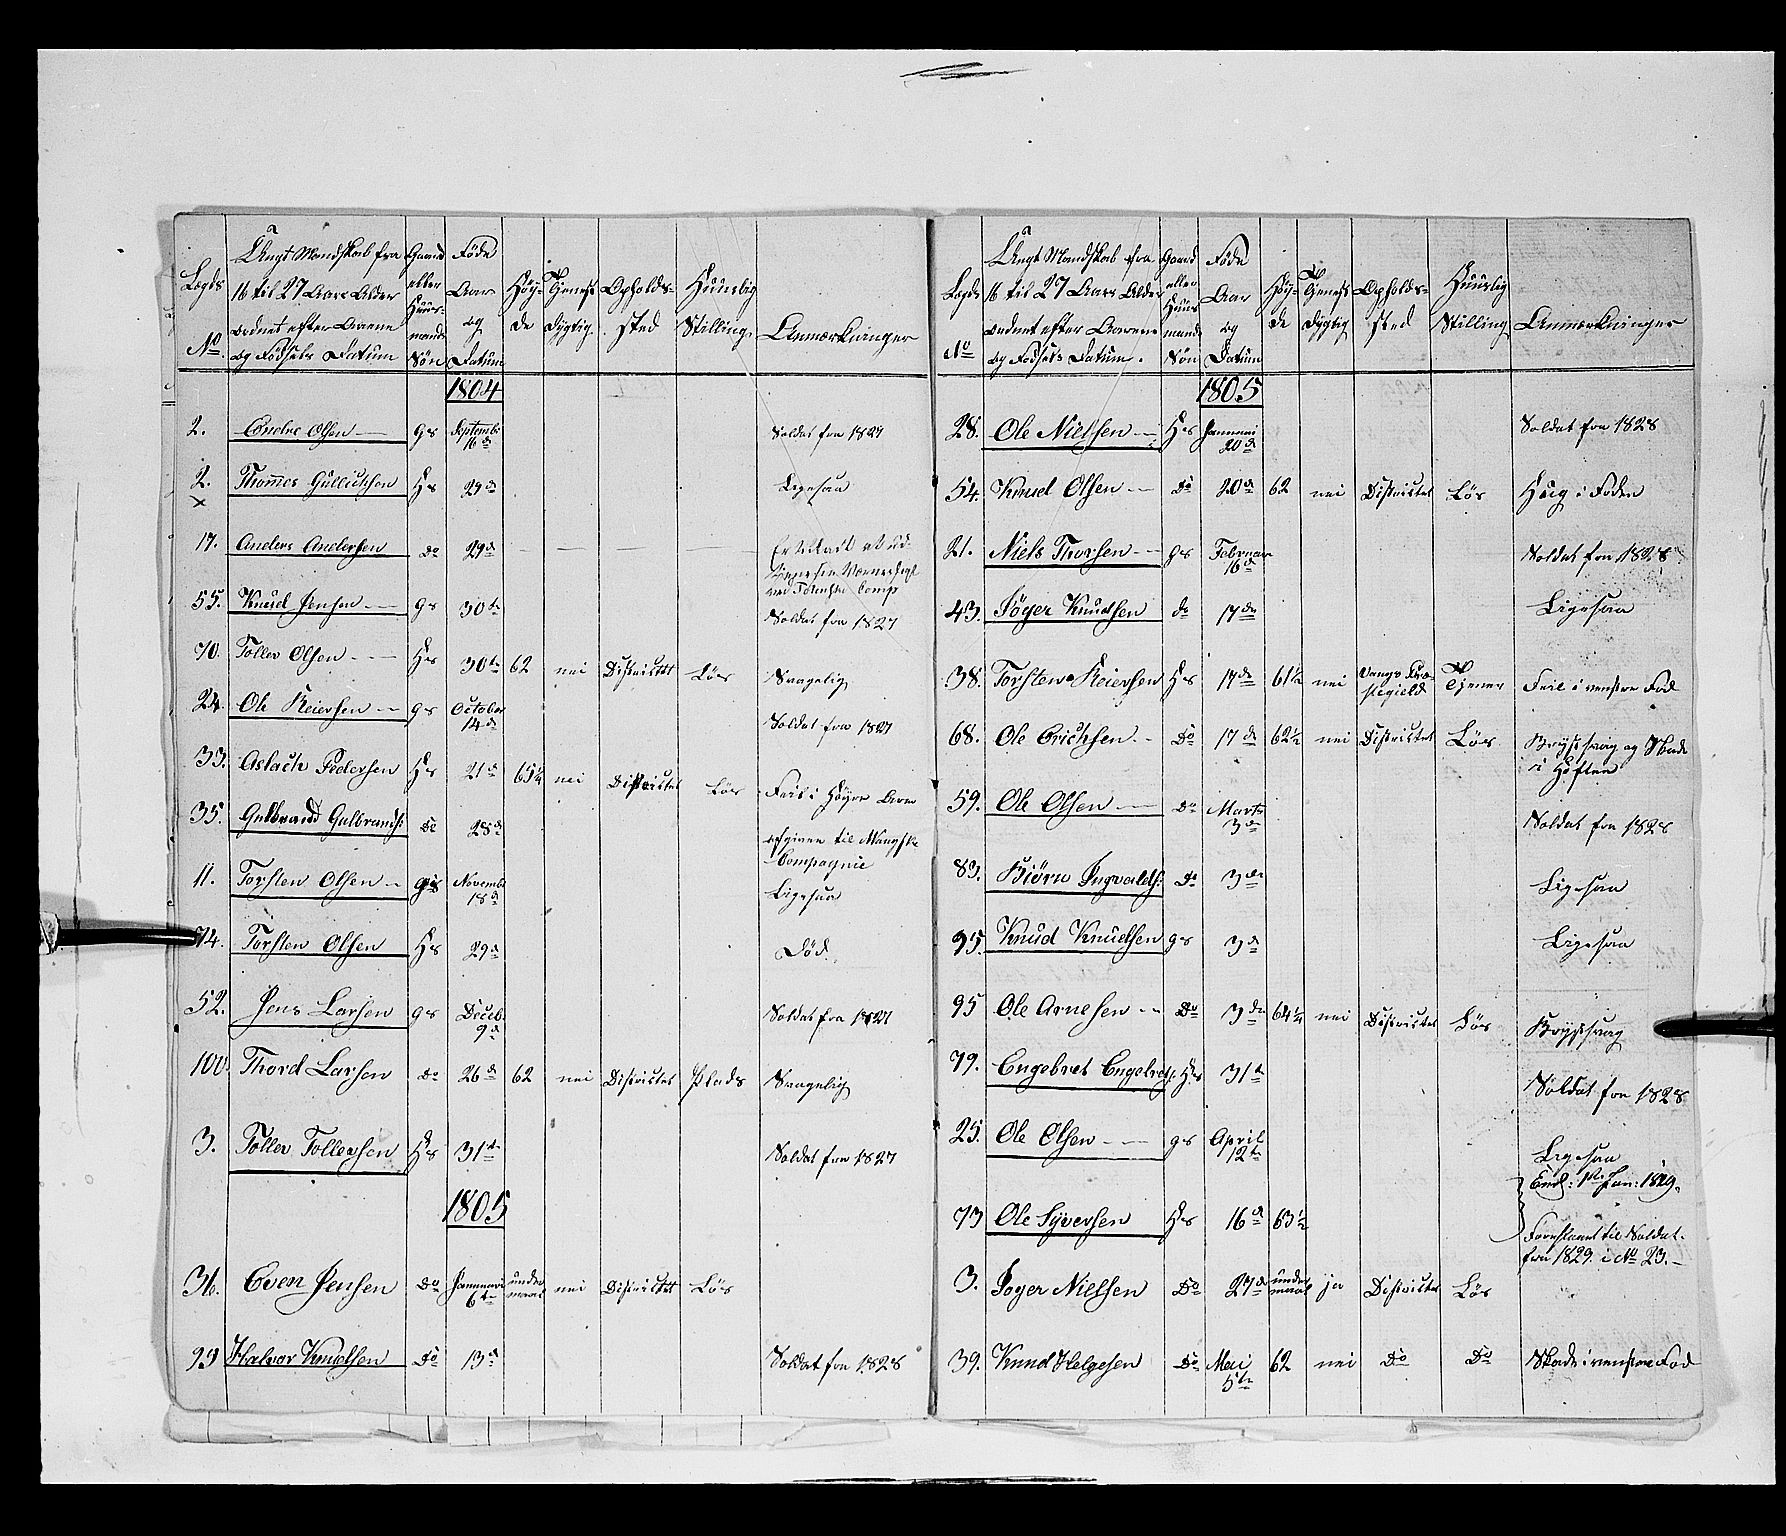 Lægds No. Ungt Mandskab fra 16 til 27 Aars Alder ordnet efter Aarene og Fødsels Datum Gaard eller Huusmands Søn Føde Aar og Datum Høyde Tjenest Dygtig. Opholdssted Huuslig Stilling. Anmærkninger
1804
2. Endre Olsen gs Septembr 16 d Soldat fra 1827
2. Thomes Gullichsen Hs 29 d Ligesaa
×
17. Anders Andersen do 29 d
55. Knud Jensen gs 30 te Soldat fra 1827
70. Toller Olsen Hs 30 te 62 nei Districtet Løs Svagelig
24. Ole Reiersen gs October 14 d Soldat fra 1827
33. Aslach Pedersen Hs 21 d 65¼ nei Districtet Løs Feil i Høyre Arm
35. Gulbrand Gulbrands: Do 28 d afgiven til Compagnie
11. Torsten Olsen gs Novembr 18 d Ligesaa
74. Torsten Olsen Hs 29 d Død.
52. Jens Larsen gs Deceb. 9 d Soldat fra 1827
100. Thord Larsen Do 26 d 62 nei Districtet Plads Svagelig
3. Toller Tollersen Hs 31 te Soldat fra 1827
1805
36. Even Jensen Do Januari 6 te under maal nei Districtet Løs
99 Halvor Knudsen Do 13 d Soldat fra 1828
Lægds No Ungt Mandskab fra 16 til 27 Aars Alder ordnet efter Aarene og Fødsels Datum. Gaard eller Huusmands Søn Føde Aar og Datum Høyde Tjenest Dygtig Opholdssted Huuslig Stilling Anmærkninger
1805
28. Ole Nielsen Hs Januari 20 d Soldat fra 1828
54. Knud Olsen Do 20 d 62 nei Districtet Løs Hug i Foden
21. Niels Thorsen gs Februar 16 d Soldat fra 1828
43. Söger Knudsen do 17 de Ligesaa
38. Torsten Reiersen Hs 17 de 61½ nei Vangs Præstegield Tjener Feil i venstre Fod
68. Ole Erichsen Do 17 de 62½ nei Districtet Løs Brystsvag og Skade i Hoften
59. Ole Olsen Do Marts 3 de Soldat fra 1828
83. Biörn Ingvalds: Do 3 de Ligesaa
95. Knud Knudsen gs 3 d Ligesaa
95 Ole Arnesen Do 3 de 64¼ nei Districtet Løs Brystsvag
79. Engebret Engebrets: Hs 31 te Soldat fra 1828
25. Ole Olsen gs April 12 te Ligesaa
73 Ole Syversen Hs 16 d 63½ Eml: 1ste Jan: 1829.
til Soldat fra 1829. i No 23.
3. Soger Nielsen Do 27 d under maal ja Districtet Løs
39. Knud Helgesen Do Mai 5 te 62 nei Do Do Skade i venstre Fod